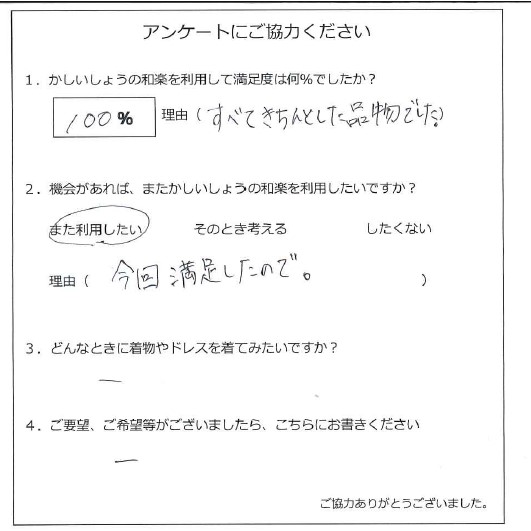 アンケートにご協力ください
1．かしいしょうの和楽を利用して満足度は何%でしたか？
100% 理由（すべてきちんとした品物でした）
2．機会があれば、またかしいしょうの和楽を利用したいですか？
また利用したい そのとき考える したくない
理由（ 今回満足したので。 ）
3．どんなときに着物やドレスを着てみたいですか？
—
4．ご要望、ご希望等がございましたら、こちらにお書きください
—
ご協力ありがとうございました。